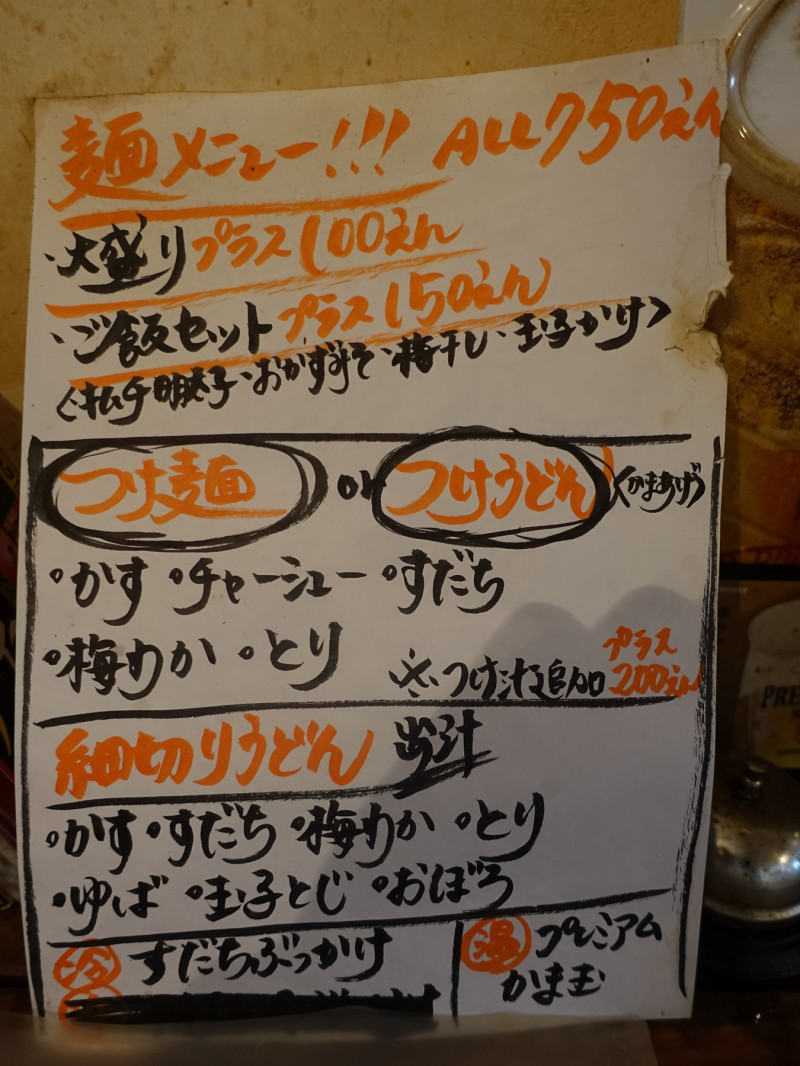 麺メニュー!!! ALL750えん
・大盛りプラス100えん
・ご飯セットプラス150えん
<キムチ・明太子・おかずみそ・梅干し・玉子かけ>
つけ麺 or つけうどん <かまあげ>
・かす ・チャーシュー ・すだち
・梅わか ・とり ※つけ汁追加プラス200えん
細切りうどん 出汁
・かす ・すだち ・梅わか ・とり
・ゆば ・玉子とじ ・おぼろ
冷 すだちぶっかけ
温 プレミアム
かま玉